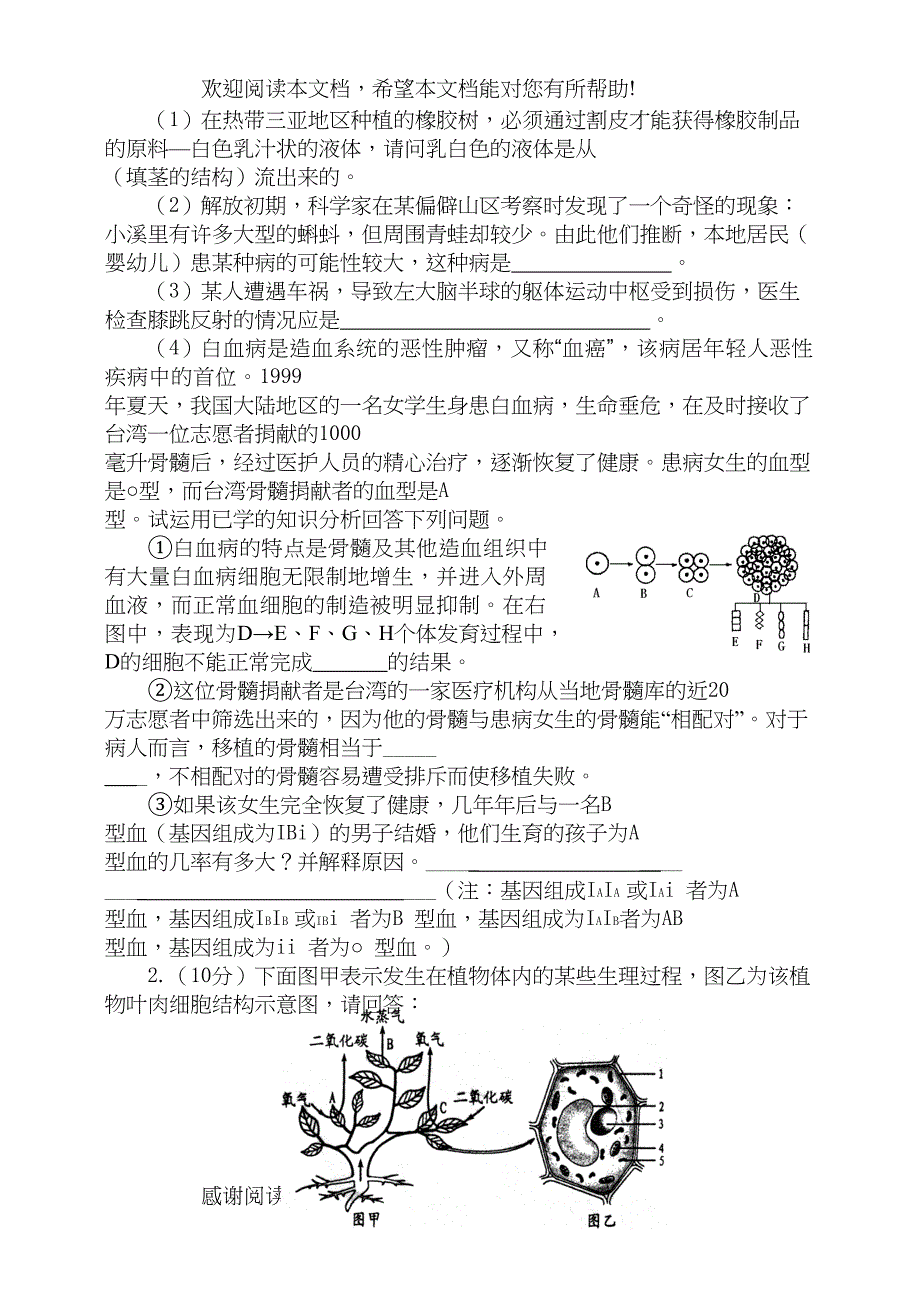 欢迎阅读本文档，希望本文档能对您有所帮助!
（1）在热带三亚地区种植的橡胶树，必须通过割皮才能获得橡胶制品
的原料—白色乳汁状的液体，请问乳白色的液体是从
（填茎的结构）流出来的。
（2）解放初期，科学家在某偏僻山区考察时发现了一个奇怪的现象：
小溪里有许多大型的蝌蚪，但周围青蛙却较少。由此他们推断，本地居民（
婴幼儿）患某种病的可能性较大，这种病是_______________。
（3）某人遭遇车祸，导致左大脑半球的躯体运动中枢受到损伤，医生
检查膝跳反射的情况应是_____________________________。
（4）白血病是造血系统的恶性肿瘤，又称“血癌”，该病居年轻人恶性
疾病中的首位。1999
年夏天，我国大陆地区的一名女学生身患白血病，生命垂危，在及时接收了
台湾一位志愿者捐献的1000
毫升骨髓后，经过医护人员的精心治疗，逐渐恢复了健康。患病女生的血型
是○型，而台湾骨髓捐献者的血型是A
型。试运用已学的知识分析回答下列问题。
①白血病的特点是骨髓及其他造血组织中
有大量白血病细胞无限制地增生，并进入外周
血液，而正常血细胞的制造被明显抑制。在右
图中，表现为D→E、F、G、H个体发育过程中，
D的细胞不能正常完成_______的结果。
A B C D
E F G H
②这位骨髓捐献者是台湾的一家医疗机构从当地骨髓库的近20
万志愿者中筛选出来的，因为他的骨髓与患病女生的骨髓能“相配对”。对于
病人而言，移植的骨髓相当于_____
____，不相配对的骨髓容易遭受排斥而使移植失败。
③如果该女生完全恢复了健康，几年年后与一名B
型血（基因组成为IBi）的男子结婚，他们生育的孩子为A
型血的几率有多大？并解释原因。________________________
_______________________________（注：基因组成IAIA 或IAi 者为A
型血，基因组成IBIB 或IBi 者为B 型血，基因组成为IAIB者为AB
型血，基因组成为ii 者为○ 型血。）
2.（10分）下面图甲表示发生在植物体内的某些生理过程，图乙为该植
物叶肉细胞结构示意图，请回答：
水蒸气
二氧化碳 B 氧气
氧气 A C 二氧化碳
1
2
3
4
5
感谢阅读
图甲 图乙